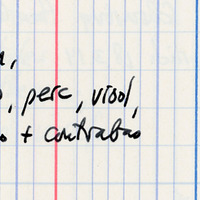 , perc, viool,
+ contrabas